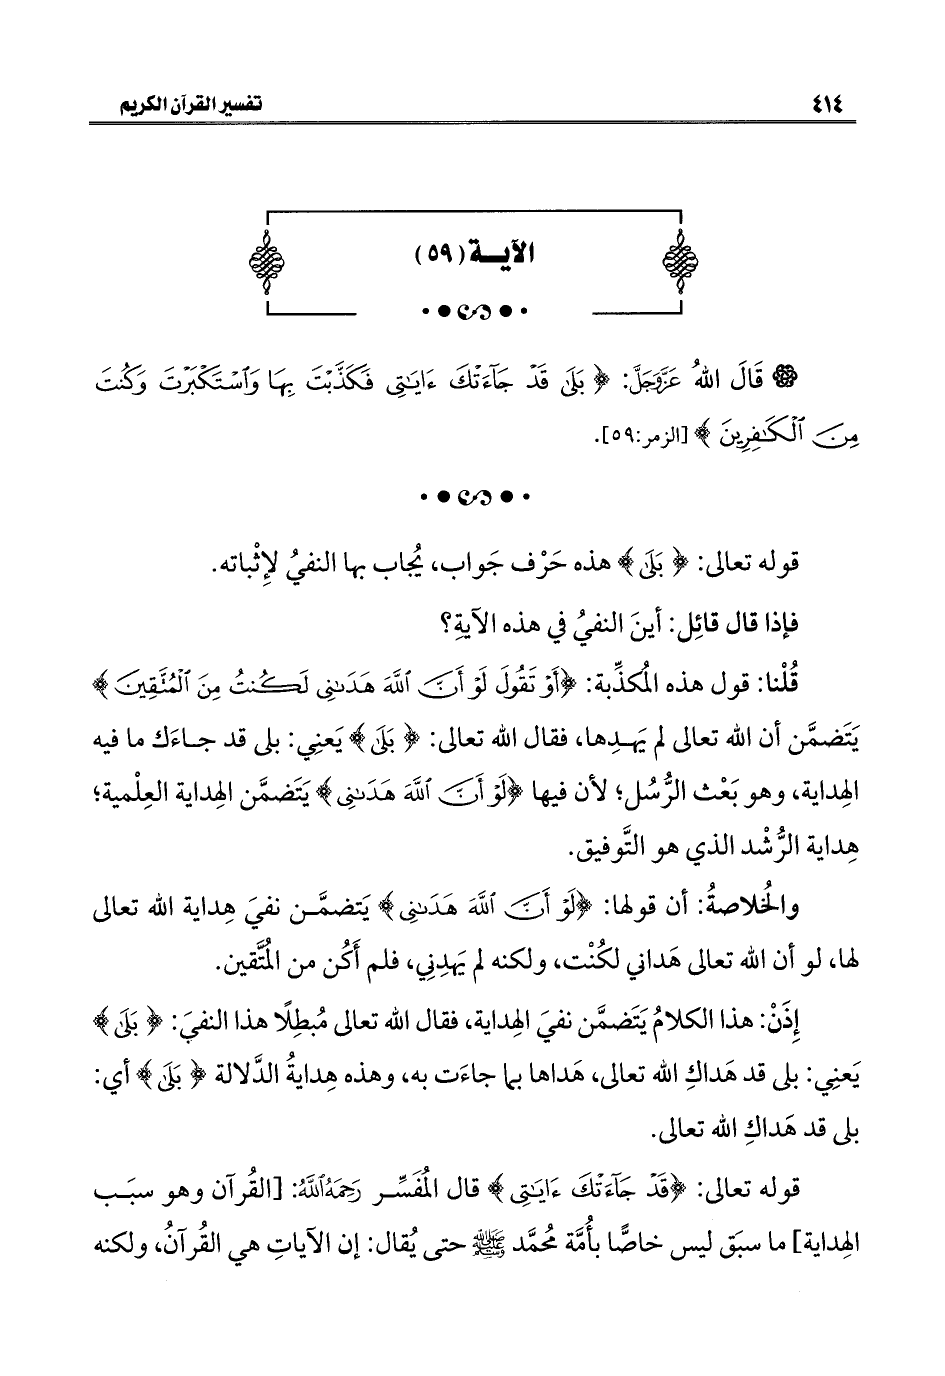 ٤١٤ تفسير القرآن الكريم
الآيـــة (٥٩)
قَالَ اللهُ عَزَّوَجَلَّ: ﴿ بَلَىٰ قَدْ جَآءَتْكَ ءَايَـٰتِى فَكَذَّبْتَ بِهَا وَٱسْتَكْبَرْتَ وَكُنتَ
مِنَ ٱلْكَـٰفِرِينَ ﴾ [الزمر:٥٩].
قوله تعالى: ﴿ بَلَىٰ ﴾ هذه حَرْف جَواب، يُجاب بها النفيُ لإِثْباته.
فإذا قال قائِل: أينَ النفيُ في هذه الآيةِ؟
قُلْنا: قول هذه المُكذِّبة: ﴿أَوْ تَقُولَ لَوْ أَنَّ ٱللَّهَ هَدَىٰنِى لَكُنتُ مِنَ ٱلْمُتَّقِينَ ﴾
يَتَضمَّن أن الله تعالى لم يَهـدِها، فقال الله تعالى: ﴿ بَلَىٰ ﴾ يَعنِي: بلى قد جـاءَك ما فيه
الهِداية، وهو بَعْث الرُّسُل؛ لأن فيها ﴿لَوْ أَنَّ ٱللَّهَ هَدَىٰنِى﴾ يَتَضمَّن الهِداية العِلْمية؛
هِداية الرُّشْد الذي هو التَّوفيق.
والخُلاصةُ: أن قولها: ﴿لَوْ أَنَّ ٱللَّهَ هَدَىٰنِى﴾ يَتضمَّـن نفيَ هِداية الله تعالى
لها، لو أن الله تعالى هَداني لكُنْت، ولكنه لم يَهدِنِي، فلم أَكُن من المُتَّقين.
إِذَنْ: هذا الكلامُ يَتَضمَّن نفيَ الهِداية، فقال الله تعالى مُبطِلًا هذا النفيَ: ﴿ بَلَىٰ ﴾
يَعنِي: بلى قد هَداكِ الله تعالى، هَداها بما جاءَت به، وهذه هِدايةُ الدَّلالة ﴿ بَلَىٰ ﴾ أي:
بلى قد هَداكِ الله تعالى.
قوله تعالى: ﴿قَدْ جَآءَتْكَ ءَايَـٰتِى ﴾ قال المُفَسِّـر رَحِمَهُ ٱللَّهُ: [القُرآن وهو سبَـب
الهِداية] ما سبَق ليس خاصًّا بأُمَّة مُحمَّد ﷺ حتى يُقال: إن الآياتِ هي القُرآنُ، ولكنه